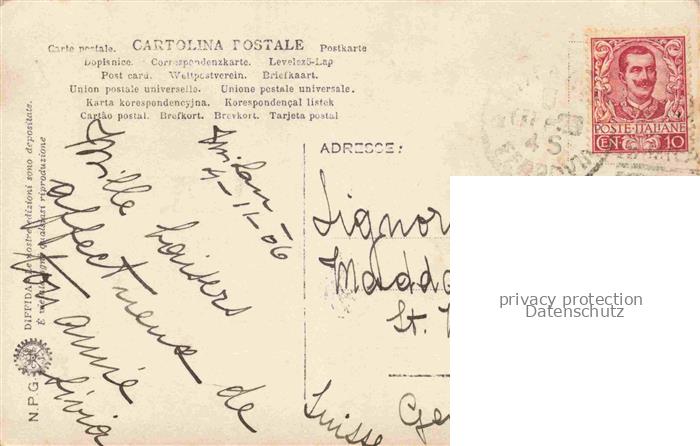 Carte postale. CARTOLINA POSTALE Postkarte
Dopisnice. Correspondenzkarte. Levelező-Lap
Post card. Weltpostverein. Briefkaart.
Union postale universelle. Unione postale universale.
Karta korespondencyjna. Korespondençal listek
Cartão postal. Brefkort. Brevkort. Tarjeta postal
POSTE·ITALIANE
CEN 10
45
ADRESSE:
Milan
4-11-06
Mille baisers
affectueux de
ton amie
Livia
Signor
Madda
St.
Suisse Gen
privacy protection
Datenschutz
DIFFIDA. Le nostre edizioni sono depositate.
È vietata ogni qualsiasi riproduzione
N.P.G.